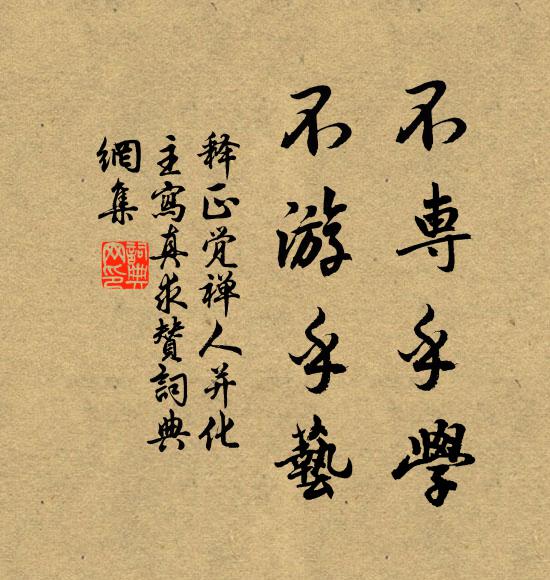 不専乎學
不游乎藝
释正觉禅人并化
主寫真求賛詞典
網集
詞典網印